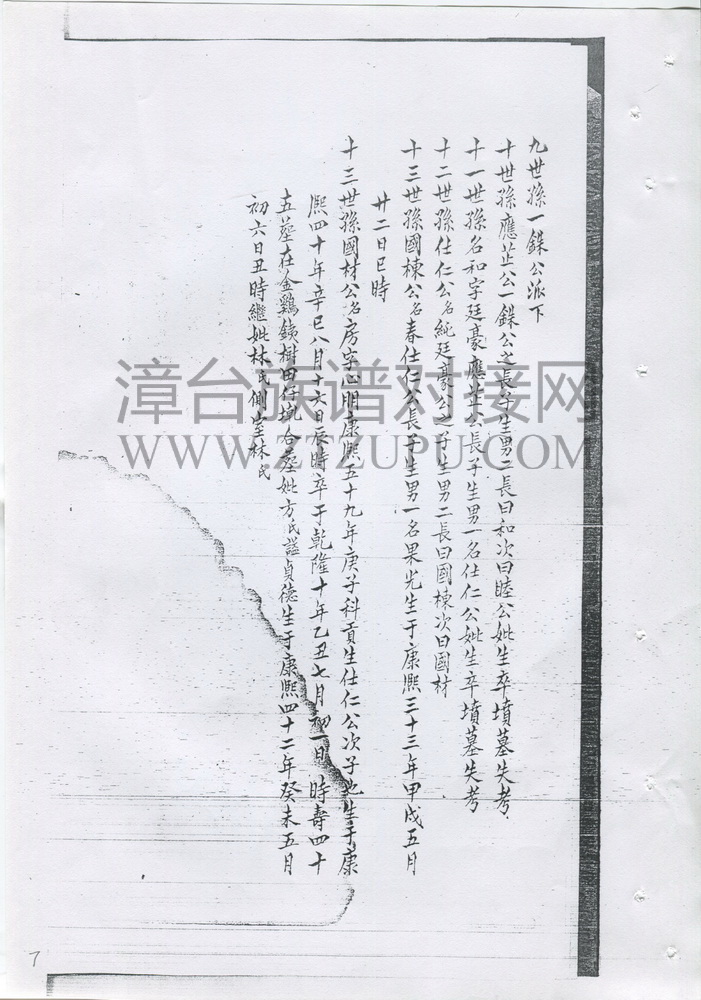 九世孫一鎂公派下
十世孫應芷公一鎂公之長子生男二長曰和次曰睦公妣生卒墳墓失考
十一世孫名和字廷豪應芷公長子生男一名仕仁公妣生卒墳墓失考
十二世孫仕仁公名純廷豪公之子生男二長曰國棟次曰國材
十三世孫國棟公名春仕仁公長子生男一名果光生于康熙三十三年甲戌五月
廿二日巳時
十三世孫國材公名房字心明康熙五十九年庚子科貢生仕仁公次子也生于康
熙四十年辛巳八月十六日辰時卒于乾隆十年乙丑七月初一日 時壽四十
五墓在金鷄錢樹田仔坑合墓妣方氏謚貞德生于康熙四十二年癸未五月
初六日丑時繼妣林氏側室林氏
漳台族谱对接网
WWW.ZTZUPU.COM
7